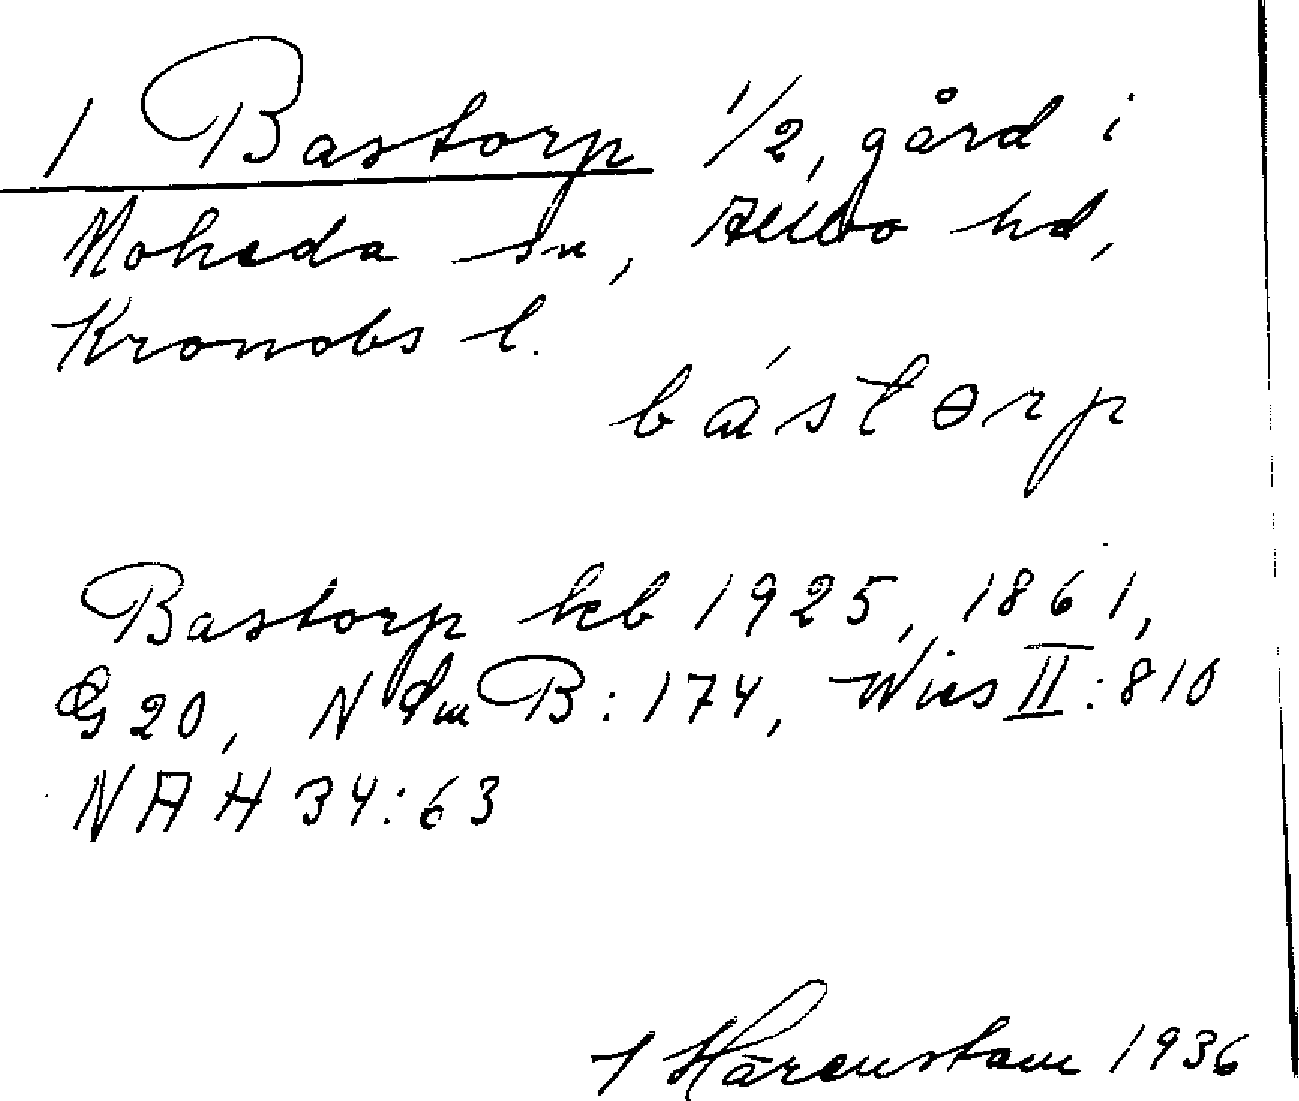 1 Bastorp 1/2, gård i
Moheda sn, Allbo hd,
Kronobs l.
bástorp
Bastorp kb 1925, 1861,
G 20, N Sm B: 174, Wies II: 810
NAH 34: 63
Härenstam 1936